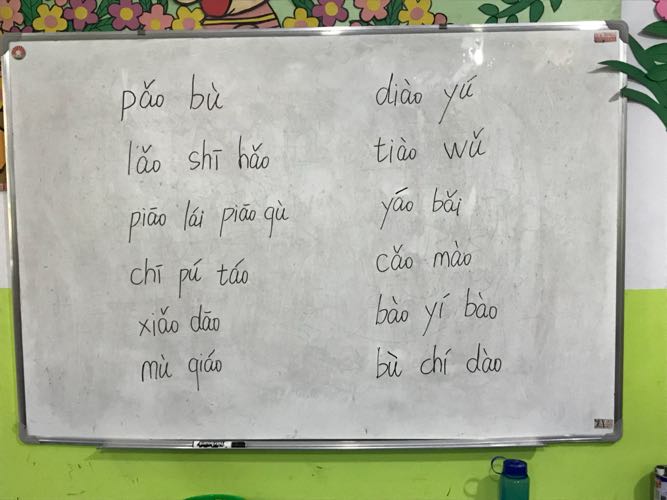 pǎo bù
lǎo shī hǎo
piāo lái piāo qù
chī pú táo
xiǎo dāo
mù qiáo
diào yú
tiào wǔ
yáo bǎi
cǎo mào
bào yí bào
bù chí dào